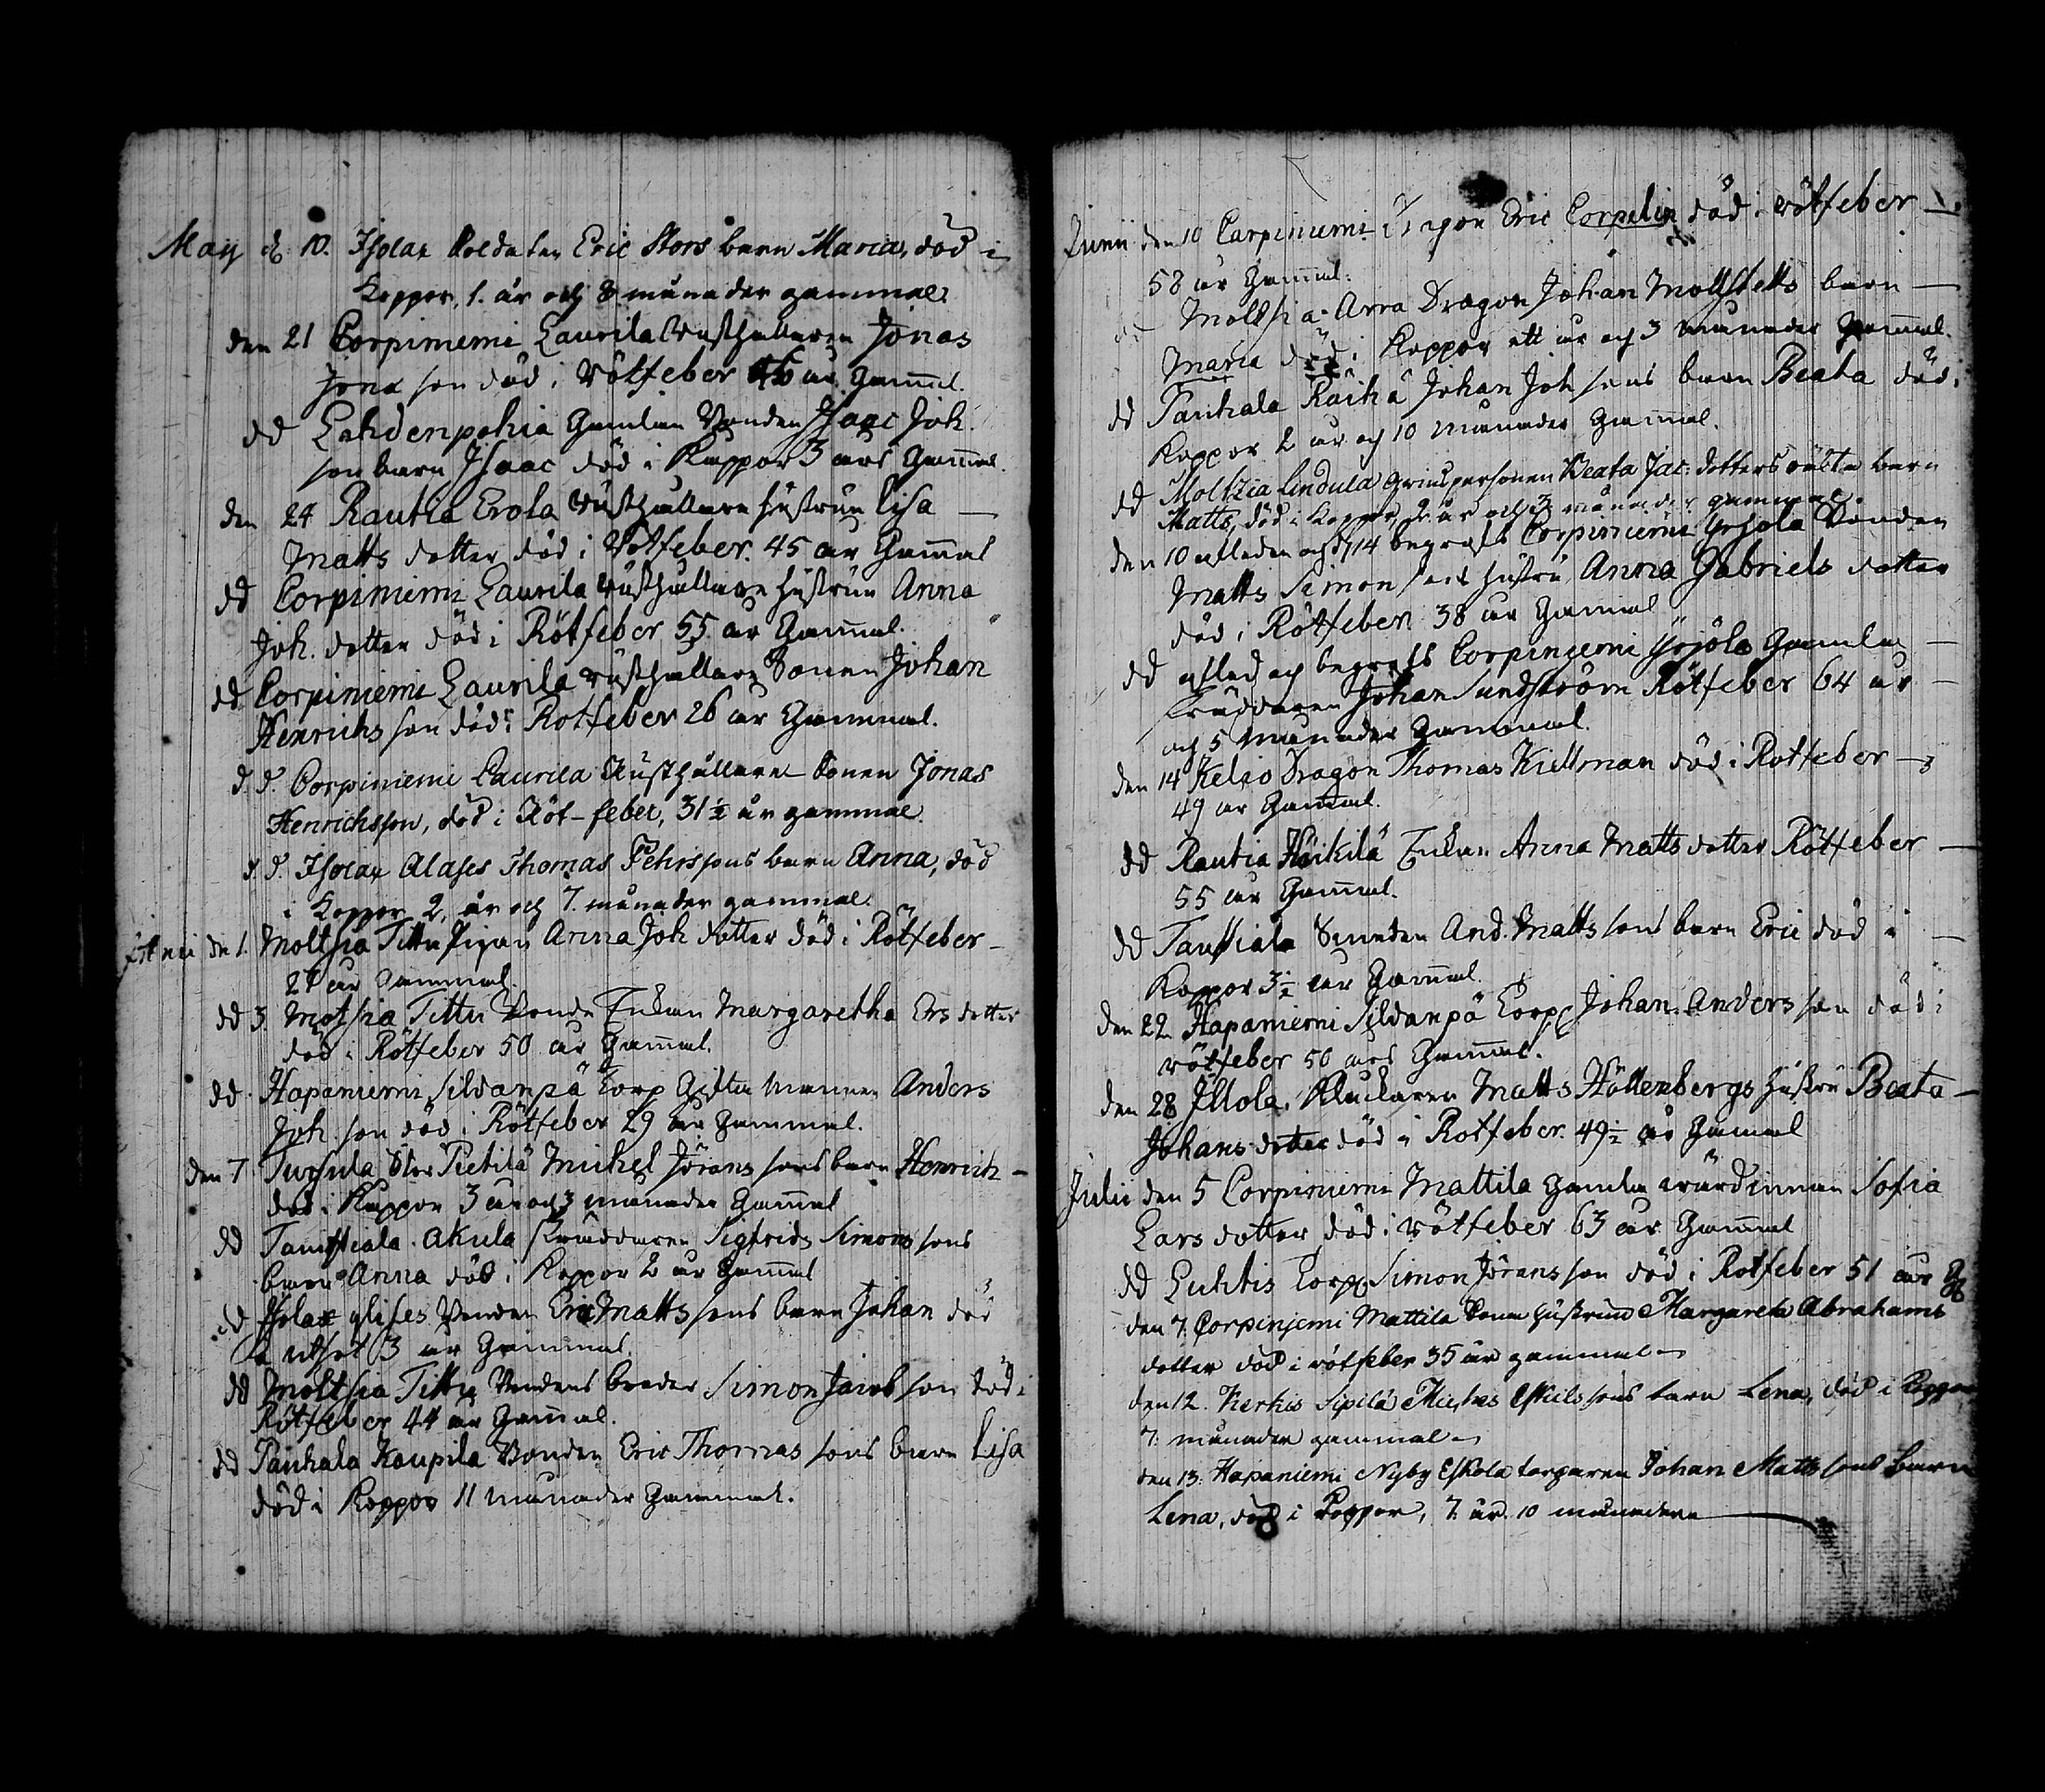 May d 10. Isolax Soldaten Eric Stors barn Maria, död i
Koppor, 1. år och 8 månader gammal.
den 21 Corpiniemi Laurila Rusthållaren Jonas
Jonæ son död i rötfeber år Gamal.
dd Lahdenpohia Gamlan Bonden Isaac Joh.
son barn Isaac död i Koppor 3 års Gamal.
den 24 Rautia Erola rusthållare hustrun Lisa
Matts dotter död i Rötfeber. 45 år Gamal
dd Corpiniemi Laurila rusthållare hustrun Anna
Joh. dotter död i Rötfeber 55 år Gamal.
dd Corpiniemi Laurila rusthållare Sonen Johan
Henrichs son död i Rotfeber 26 år Gammal.
d. d. Corpiniemi Laurila Rusthållare Sonen Jonas
Henrichsson, död i Röt-feber, 31 1/2 år gammal.
d. d. Isolax Alases Thomas Pehrssons barn Anna, död
i Koppor 2, år och 7. månader gammal.
den 1. Moltsia Tittu Pigan Anna Joh dotter död i Rötfeber
år Gammal.
dd 3. Motsia Tittu Bonde Enkan Margaretha Ers dotter
död i Rötfeber 50 år Gamal.
dd Hapaniemi Sildanpä Torp Gifta Mannen Anders
Joh. son död i Rötfeber 29 år Gammal.
den 7 Tursula Stor Pietilä Michel Jörans sons barn Henrich
död i Koppor 3 år och 3 månader Gamal
dd Taussiala Akula Skräddaren Sigfrids Simons sons
barn Anna död i Koppor 2 år Gamal
dd Isolax glises Bonden Eric Matts sons barn Johan död
3 år Gammal.
dd Moltsia Tittu Bondens broder Simon Jacob son död i
Rötfeber 44 år Gamal.
dd Pauhala Kaupila Bonden Eric Thomas sons barn Lisa
död i Koppor 11 månader Gammal.
Junii den 10 Corpiniemi Dragon Eric Corpelin död i rötfeber
58 år Gamal.
Moltsia Arra Dragon Johan barn
Maria död i Koppor ett år och 3 månader Gamal.
dd Pauhala Räihä Johan Joh sons barn Beata död i
Koppor 2 år och 10 månader Gamal.
dd Moltzia Lindula Beata Jac: dotters oäkta barn
Matts, död i Koppor 2. år och 3 månader gammal.
den 10 afleden och d 14 begrafs Corpiniemi Yrjola Bonden
Matts Simon sons hustru Anna Gabriels dotter
död i Rötfeber. 38 år Gamal
dd afled och begrofs Corpiniemi Yrjola Gamla
Skräddaren Johan Sundström Rötfeber 64 år
och 5 månader Gammal.
den 14 Kelio Dragon Thomas Kiellman död i Rotfeber
49 år Gamal.
dd Rautia Heikilä Enkan Anna Matts dotter Rötfeber
55 år Gamal.
dd Taussiala Bonden And. Matts sons barn Eric död i
Koppor 3 1/2 år Gamal.
den 22 Hapaniemi Sildanpä Torp Johan Anders son död i
rötfeber 50 års Gamal.
den 28 Illola, Klockaren Matts Höllenbergs hustru Beata
Johans dotter död i Rotfeber. 49 1/2 år Gamal
Julii den 5 Corpiniemi Mattila Gamla wärdinnan Sofia
Lars dotter död i rötfeber 63 år Gamal
dd Luhtis Torp Simon Jörans son död i Rotfeber 51 år G
den 7. Corpiniemi Mattila Sonen hustrun Margareta Abrahams
dotter död i rötfeber 35 år gammal
den 12. Kerkis Sipilä Eskils sons barn Lena, död i Koppor
7. månader gammal
den 13. Hapaniemi Nyby Eskola torparen Johan Matts sons Barn
Lena, död i Koppor, 7. år. 10 månader